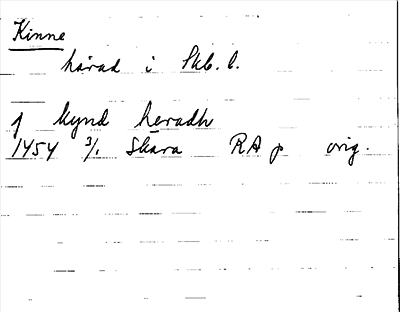 Kinne
härad i Skb. l.
1 kynd heradh
1454 3/1 Skara RA p orig.